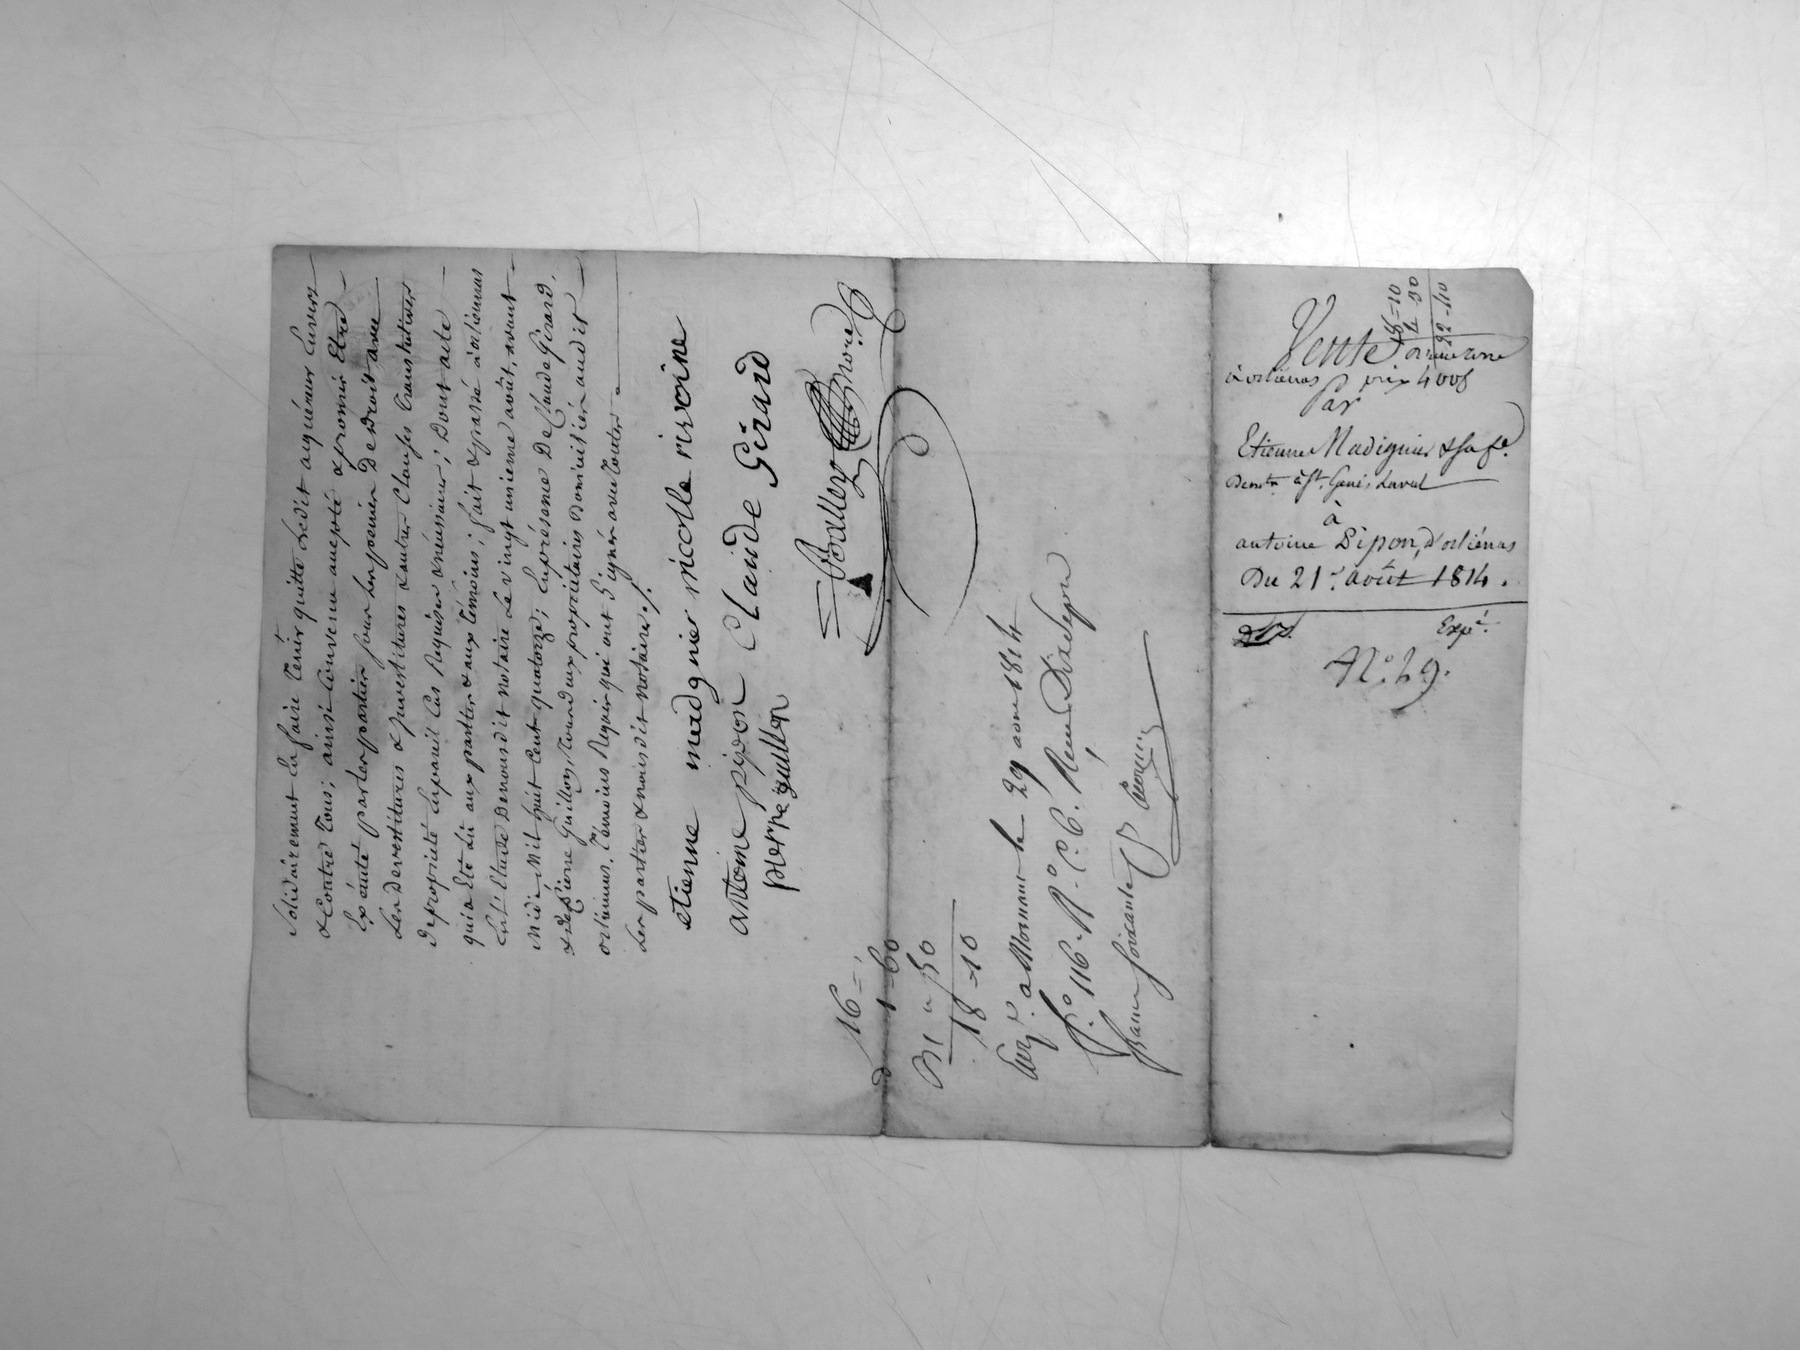 Solidairement la faire tenir quitte Ledit acquéreur Envers
& Contre tous; ainsi Convenu accepté & promis Etre
Exécuté par les parties pour les peines De droit, avec
Les devestitures & jnvestitures & autres Clauses translatives
De propriété En pareil Cas Requises & nécessaires; Dont acte
qui a Eté Lû aux parties & aux témoins; fait & passé à orliénas
En L'étude De nous dit notaire Le vingt unieme août, avant
Midi Mil huit Cent quatorze; En présence De Claude Girard,
& de Pierre Guillon, tous deux propriétaires Domiciliés audit
orliénas, témoins Requis qui ont Signés avec toutes
Les parties & nous dit notaire./.
etienne madgnier nicolle rivoire
antoine pipon Claude Girard
pierre guillon
16 = "
1 = 60
" 50
18 = 10
a Mornant le 29 aout 1814
f.o 116. R.o C. 6. Reçu Dix
Vente
18 = 10
4 30
22 - 40
à orliénas prix 400f
Par
Etienne Madignier & sa fe
Demts à St. Genis Laval
à
antoine Pipon, d'orliénas
Du 21.e août 1814.
Expé.
N.o 49.